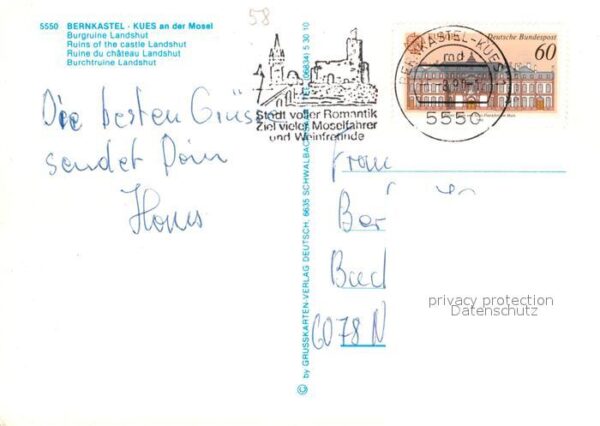 58
5550 BERNKASTEL - KUES an der Mosel
Burgruine Landshut
Ruins of the castle Landshut
Ruine du château Landshut
Burchtruine Landshut
Die besten Grüsse
sendet Dein
Hans
Stadt voller Romantik
Ziel vieler Moselfahrer
und Weinfreunde
BERNKASTEL-KUES
md
5550
Deutsche Bundespost
60
© by GRUSSKARTEN-VERLAG DEUTSCH, 6635 SCHWALBACH TEL. (06834) 5 30 10
Frau
Bad
6078 N
privacy protection
Datenschutz